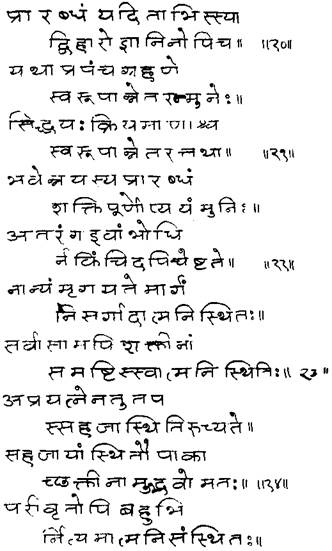 प्रारब्धं यदि ताभिस्स्या
द्विहारो ज्ञानिनोपिच॥ ॥२०॥
यथा प्रपंच ग्रहणे
स्वरूपान्नेतरन्मुनेः॥
सिद्धयः क्रियमाणाश्च
स्वरूपान्नेतरत्तथा॥ ॥२१॥
भवेन्नयस्य प्रारब्धं
शक्तिपूर्णोप्ययं मुनिः॥
अतरंग इवांभोधि
र्नकिंचिदपिचेष्टते॥ ॥२२॥
नान्यं मृगयते मार्गं
निसर्गादात्मनि स्थितः॥
सर्वासामपि शक्तीनां
समष्टिस्स्वात्मनि स्थितिः॥ २३॥
अप्रयत्नेन तु तप
स्सहजा स्थितिरुच्यते॥
सहजायां स्थितौ पाका
च्छक्तीनामुद्भवो मतः॥ ॥२४॥
परिवृतोपि बहुभि
र्नित्यमात्मनि संस्थितः॥